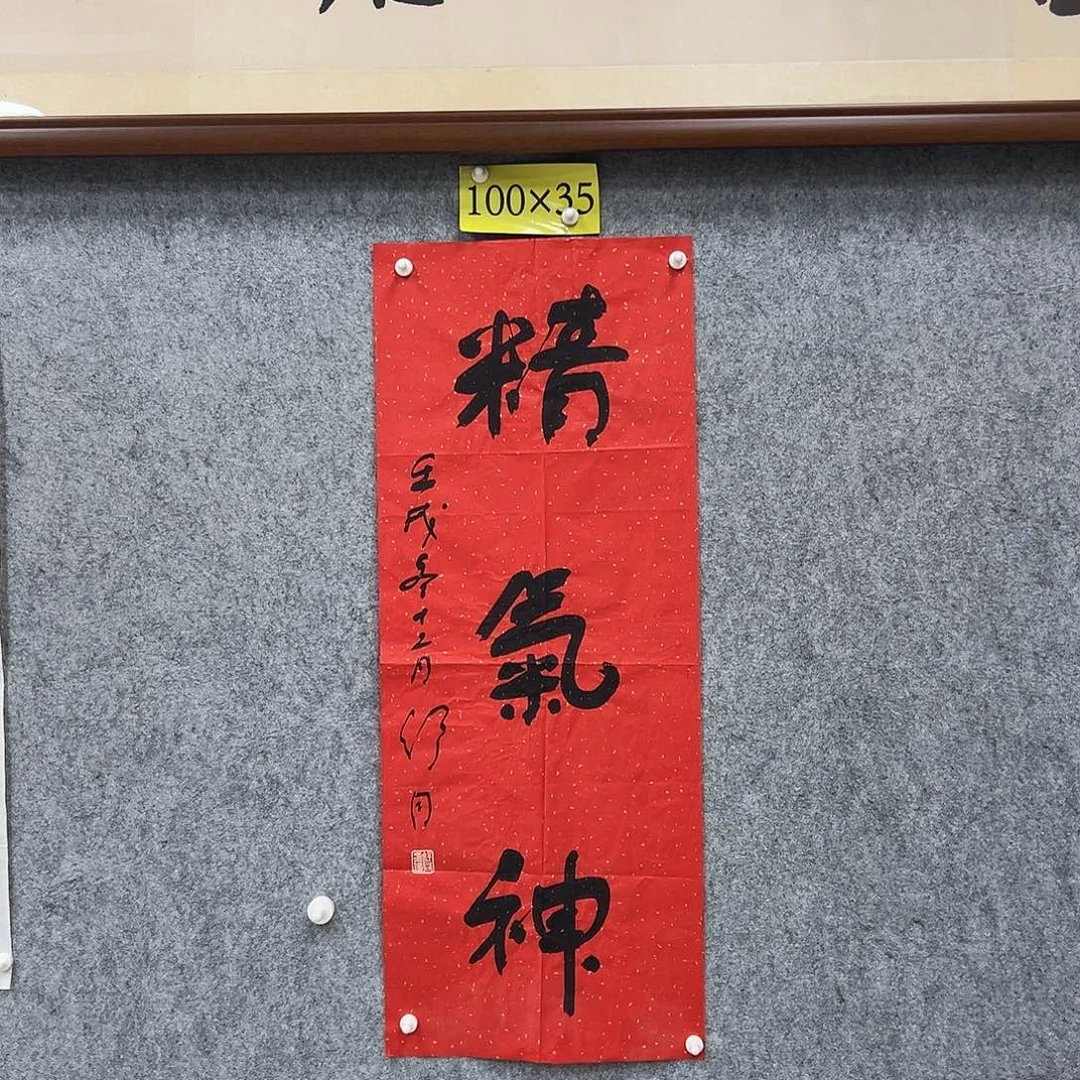 100×35
精氣神
壬戌冬十二月 舒同